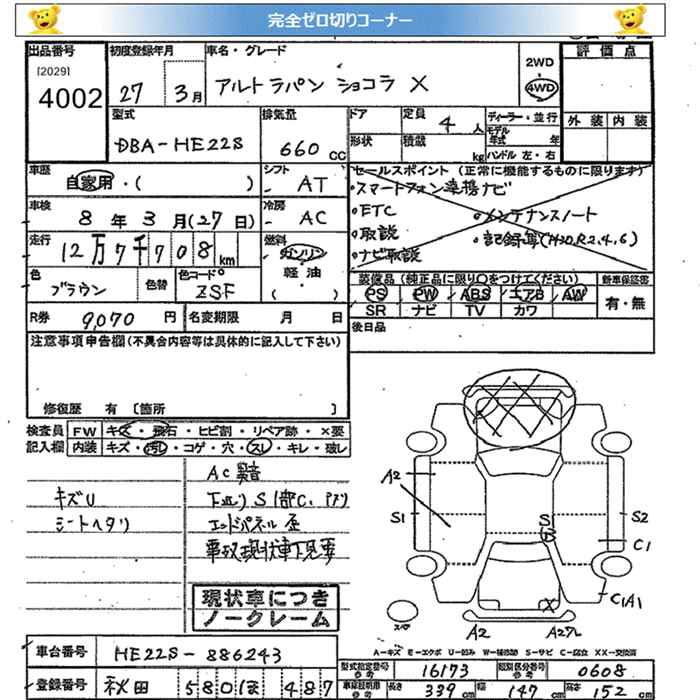 完全ゼロ切りコーナー
出品番号 初度登録年月 車名・グレード 2WD 評価点
[2029] 4WD
4002 27 3月 アルトラパン ショコラ X
型式 排気量 ドア 定員 4人 ディーラー・並行 外装 内装
DBA-HE22S 660 CC 形状 積載 kg モデル年式 年
ハンドル 左・右
車歴 自家用・( ) シフト AT セールスポイント (正常に機能するものに限ります)
・スマートフォン連携ナビ
車検 8年3月(27日) 冷房 AC ・ETC ・メンテナンスノート
・取説 ・記録簿(H30,R2,4,6)
走行 12万7千708km 燃料 ガソリン ・ナビ取説
軽油
( )
色 ブラウン 色替 色コードNo ZSF 装備品 (純正品に限り○をつけてください) 新車保証書
PS PW ABS エアB AW 有・無
SR ナビ TV カワ
R券 9,070円 名変期限 月 日 後日品
注意事項申告欄(不具合内容等は具体的に記入して下さい)
修復歴 有 〔箇所 〕
検査員 FW キズ・飛石・ヒビ割・リペア跡・×要
記入欄 内装 キズ・汚れ・コゲ・穴・スレ・キレ・破し
AC異音
キズU 下廻りS1部C,
シートヘタリ エンドパネル歪
事故現状車下見要
現状車につき
ノークレーム
A2 S1 S S2 C1 C1A1 A2
A-キズ E-エクボ U-凹み W-補修跡 S-サビ C-腐食 XX-交換済
車台番号 HE22S-886243 型式指定番号 参考 16173 類別区分番号 参考 0608
登録番号 秋田 580 ほ 487 車検証明用 参考 長さ 339 cm 幅 147 cm 高さ 152 cm